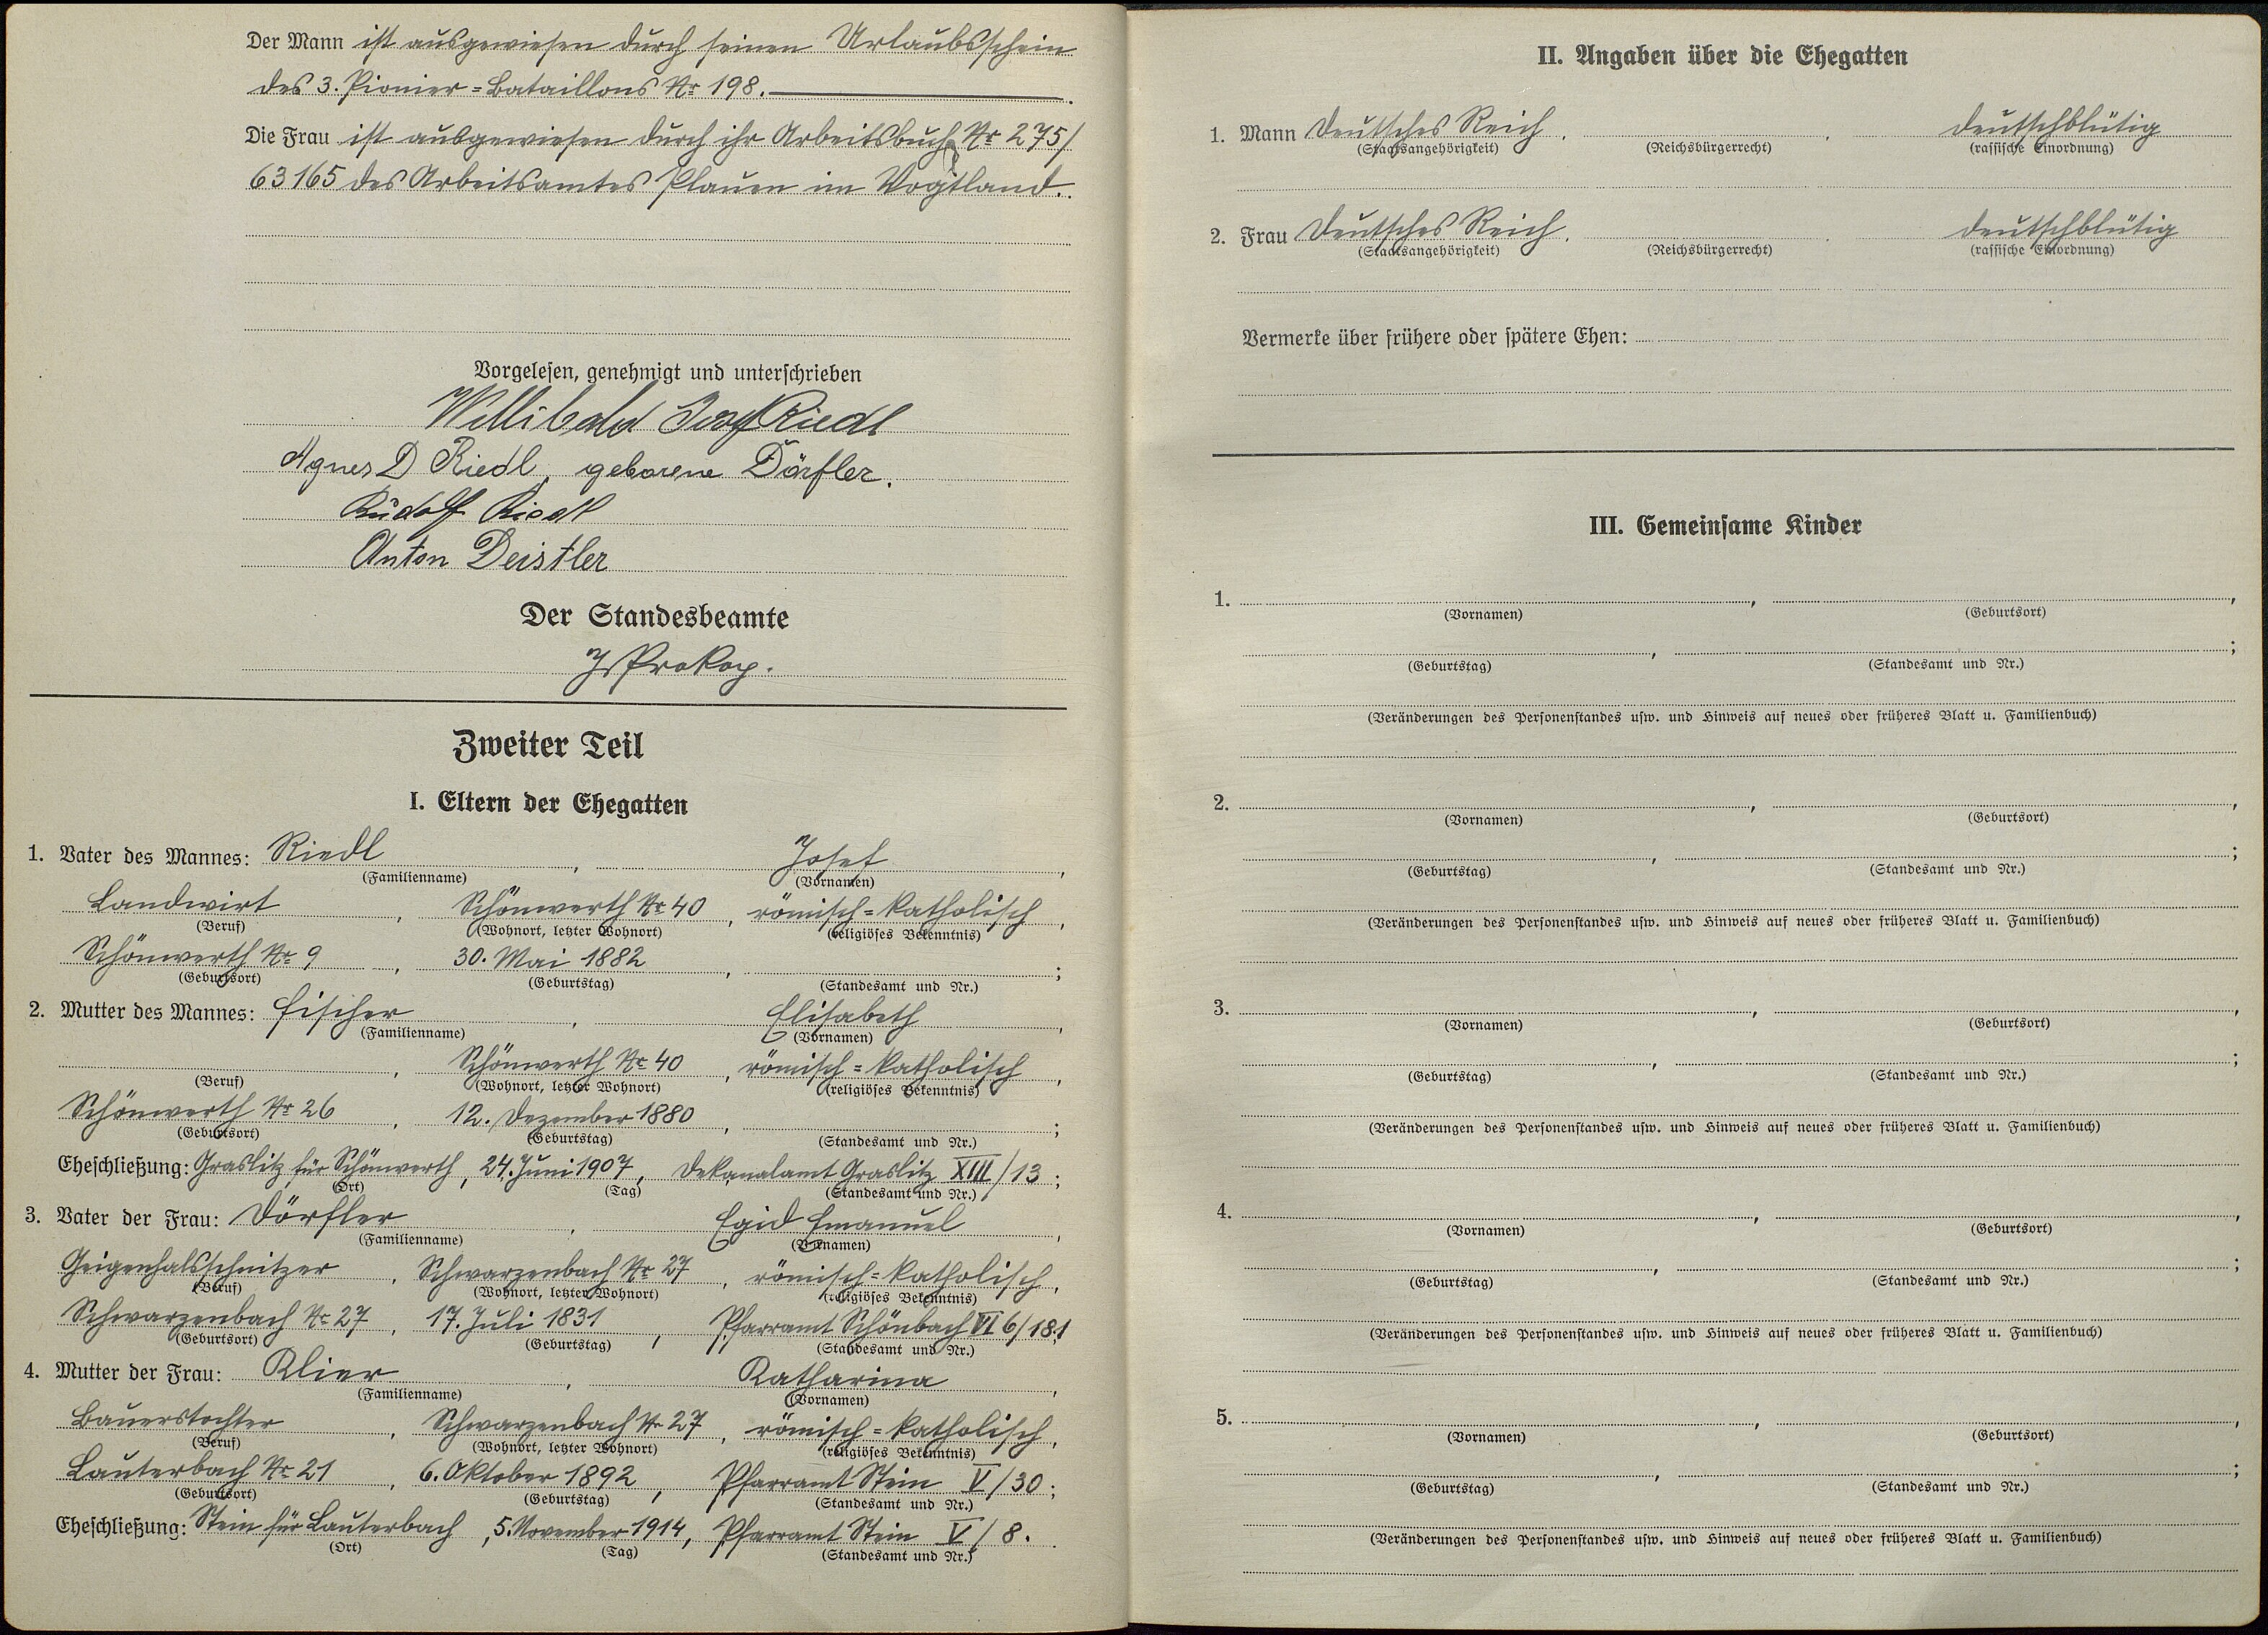 Der Mann ist ausgewiesen durch seinen Urlaubsschein
des 3. Pionier=Bataillons Nr 198.
Die Frau ist ausgewiesen durch ihr Arbeitsbuch Nr 275/
63165 des Arbeitsamtes Plauen im Vogtland.
Vorgelesen, genehmigt und unterschrieben
Willibald Josef Riedl
Agnes D Riedl, geborene Dörfler.
Rudolf Riedl
Anton Deistler
Der Standesbeamte
J Prokop.
Zweiter Teil
I. Eltern der Ehegatten
1. Vater des Mannes: Riedl, Josef,
(Familienname) (Vornamen)
Landwirt, Schönwerth Nr 40, römisch=katholisch,
(Beruf) (Wohnort, letzter Wohnort) (religiöses Bekenntnis)
Schönwerth Nr 9, 30. Mai 1882, ;
(Geburtsort) (Geburtstag) (Standesamt und Nr.)
2. Mutter des Mannes: Fischer, Elisabeth,
(Familienname) (Vornamen)
, Schönwerth Nr 40, römisch=katholisch,
(Beruf) (Wohnort, letzter Wohnort) (religiöses Bekenntnis)
Schönwerth Nr 26, 12. Dezember 1880, ;
(Geburtsort) (Geburtstag) (Standesamt und Nr.)
Eheschließung: Graslitz für Schönwerth, 24. Juni 1907, Dekanalamt Graslitz XIII/13;
(Ort) (Tag) (Standesamt und Nr.)
3. Vater der Frau: Dörfler, Egid Emanuel,
(Familienname) (Vornamen)
Geigenhalsschnitzer, Schwarzenbach Nr 27, römisch=katholisch,
(Beruf) (Wohnort, letzter Wohnort) (religiöses Bekenntnis)
Schwarzenbach Nr 27, 17. Juli 1831, Pfarramt Schönbach VI 6/181
(Geburtsort) (Geburtstag) (Standesamt und Nr.)
4. Mutter der Frau: Klier, Katharina,
(Familienname) (Vornamen)
Bauerstochter, Schwarzenbach Nr 27, römisch=katholisch,
(Beruf) (Wohnort, letzter Wohnort) (religiöses Bekenntnis)
Lauterbach Nr 21, 6. Oktober 1892, Pfarramt Stein V/30;
(Geburtsort) (Geburtstag) (Standesamt und Nr.)
Eheschließung: Stein für Lauterbach, 5. November 1914, Pfarramt Stein V/8.
(Ort) (Tag) (Standesamt und Nr.)
II. Angaben über die Ehegatten
1. Mann Deutsches Reich. . deutschblütig
(Staatsangehörigkeit) (Reichsbürgerrecht) (rassische Einordnung)
2. Frau Deutsches Reich. . deutschblütig
(Staatsangehörigkeit) (Reichsbürgerrecht) (rassische Einordnung)
Vermerke über frühere oder spätere Ehen:
III. Gemeinsame Kinder
1. , ,
(Vornamen) (Geburtsort)
, ;
(Geburtstag) (Standesamt und Nr.)
(Veränderungen des Personenstandes usw. und Hinweis auf neues oder früheres Blatt u. Familienbuch)
2. , ,
(Vornamen) (Geburtsort)
, ;
(Geburtstag) (Standesamt und Nr.)
(Veränderungen des Personenstandes usw. und Hinweis auf neues oder früheres Blatt u. Familienbuch)
3. , ,
(Vornamen) (Geburtsort)
, ;
(Geburtstag) (Standesamt und Nr.)
(Veränderungen des Personenstandes usw. und Hinweis auf neues oder früheres Blatt u. Familienbuch)
4. , ,
(Vornamen) (Geburtsort)
, ;
(Geburtstag) (Standesamt und Nr.)
(Veränderungen des Personenstandes usw. und Hinweis auf neues oder früheres Blatt u. Familienbuch)
5. , ,
(Vornamen) (Geburtsort)
, ;
(Geburtstag) (Standesamt und Nr.)
(Veränderungen des Personenstandes usw. und Hinweis auf neues oder früheres Blatt u. Familienbuch)